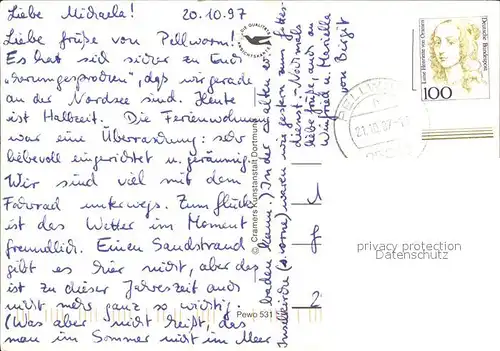 Liebe Michaela!   20.10.97
Liebe Grüße von Pellworm!
Es hat sich sicher zu Euch
"herumgesprochen", daß wir gerade
an der Nordsee sind. Heute
ist Halbzeit. Die Ferienwohnung
war eine Überraschung: sehr
liebevoll eingerichtet u. geräumig.
Wir sind viel mit dem
Fahrrad unterwegs. Zum Glück
ist das Wetter im Moment
freundlich. Einen Sandstrand
gibt es hier nicht, aber das
ist zu dieser Jahreszeit auch
nicht mehr ganz so wichtig.
(Was aber nicht heißt, das
man im Sommer nicht im Meer
baden kann.) In der alten
Inselkirche (s. vorne) waren wir gestern zum Gottes-
dienst. - Nochmals
liebe Grüße, auch an
Winfried u. Mariella
von Birgit
© Cramers Kunstanstalt Dortmund
Pewo 531
PELLWORM
21.10.97
Luise Henriette von Oranien
Deutsche Bundespost
100
privacy protection
Datenschutz